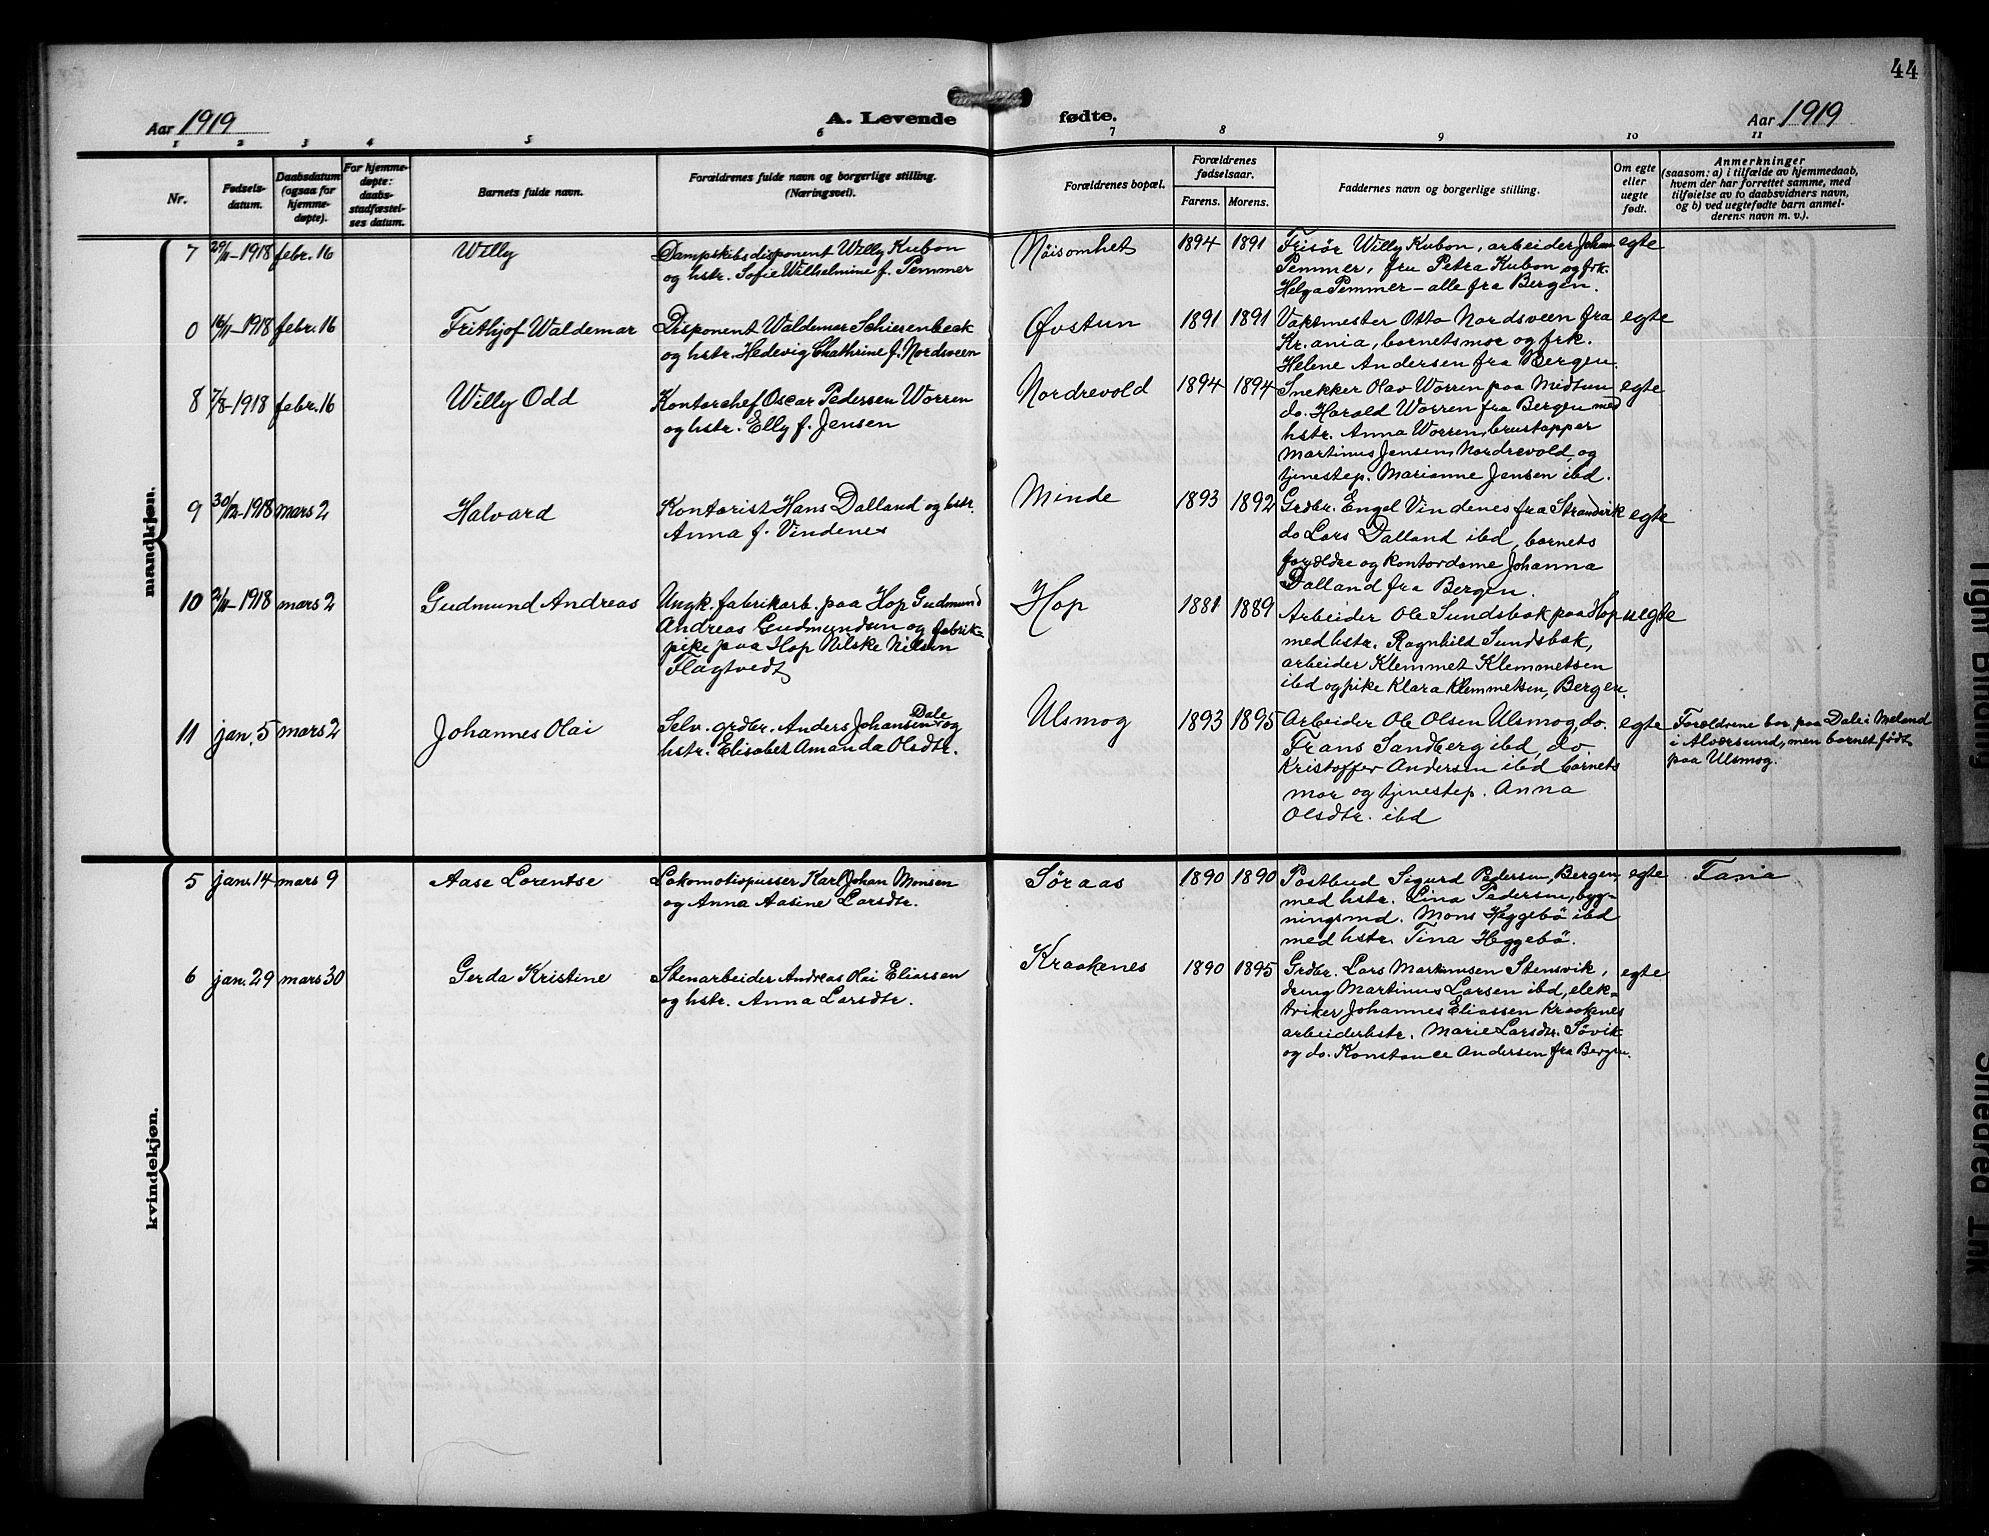 44
Aar 1919
A. Levende fødte.
Aar 1919
1 2 3 4 5 6 7 8 9 10 11
Nr.
Fødsels-
datum.
Daabsdatum
(ogsaa for
hjemme-
døpte).
For hjemme-
døpte:
daabs-
stadfæstel-
ses datum.
Barnets fulde navn.
Forældrenes fulde navn og borgerlige stilling.
(Næringsvei).
Forældrenes bopæl.
Forældrenes
fødselsaar.
Farens. Morens.
Faddernes navn og borgerlige stilling.
Om egte
eller
uegte
født.
Anmerkninger
(saasom: a) i tilfælde av hjemmedaab,
hvem der har forrettet samme, med
tilføielse av to daabsvidners navn,
og b) ved uegtefødte barn anmel-
derens navn m. v.).
mandkjøn.
7 29/11-1918 febr. 16 Willy
Dampskibsdisponent Willy Kubon
og hstr. Sofie Wilhelmine f. Pemmer
Nöisomhet 1894 1891
Frisør Willy Kubon, arbeider Johan
Pemmer, fru Petra Kubon og frk.
Helga Pemmer - alle fra Bergen.
egte
0 16/11-1918 febr. 16 Frithjof Waldemar
Disponent Waldemar Schierenbeck
og hstr. Hedevig Chathrine f. Nordsveen
Øvstun 1891 1891
Vaktmester Otto Nordsveen fra
Kr.ania, barnets mor og frk.
Helene Andersen fra Bergen.
egte
8 7/8-1918 febr. 16 Willy Odd
Kontorchef Oscar Pedersen Worren
og hstr. Elly f. Jensen
Nordrevold 1894 1894
Snekker Olav Worren paa Midtun
do. Harald Worren fra Bergen med
hstr. Anna Worren, brustapper
Martinus Jensen, Nordrevold og
tjenestep. Marianne Jensen ibd.
egte
9 30/12-1918 mars 2 Halvard
Kontorist Hans Dalland og hstr.
Anna f. Vindenes
Minde 1893 1892
Grdbr. Engel Vindenes fra Strandvik
do Lars Dalland ibd, barnets
forældre og kontordame Johanna
Dalland fra Bergen.
egte
10 2/11-1918 mars 2 Gudmund Andreas
Ungk. fabrikarb. paa Hop Gudmund
Andreas Gudmundsen og fabrik-
pike paa Hop Nilske Nilsen
Flagtvedt
Hop 1881 1889
Arbeider Ole Sundsbak paa Hop
med hstr. Ragnhild Sundsbak,
arbeider Klemmet Klemmetsen
ibd og pike Klara Klemmetsen, Bergen.
uegte
11 jan. 5 mars 2 Johannes Olai
Dale
Selv. grdbr. Anders Johansen og
hstr. Elisabet Amanda Olsdtr.
Ulsmog 1893 1895
Arbeider Ole Olsen Ulsmog, do.
Frans Sandberg ibd, do
Kristoffer Andersen ibd, barnets
mor og tjenestep. Anna
Olsdtr. ibd
egte
Forældrene bor paa Dale i Meland
i Alversund, men barnet født
paa Ulsmog.
kvindekjøn.
5 jan. 14 mars 9 Aase Lorentse
Lokomotivpusser Karl Johan Monsen
og Anna Aasine Larsdtr.
Søraas 1890 1890
Postbud Sigurd Pedersen, Bergen,
med hstr. Lina Pedersen, byg-
ningsmd. Mons Heggebö ibd
med hstr. Tina Heggebö.
egte Fana
6 jan. 29 mars 30 Gerda Kristine
Stenarbeider Andreas Olai Eliassen
og hstr. Anna Larsdtr.
Kraakenes 1890 1895
Grdbr. Lars Martinusen Stensvik,
dreng Martinus Larsen ibd, elek-
triker Johannes Eliassen Kraakenes
arbeiderhstr. Marie Larsdtr. Søvik
og do. Konstance Andersen fra Bergen.
egte
Tight Binding
Smeared Ink